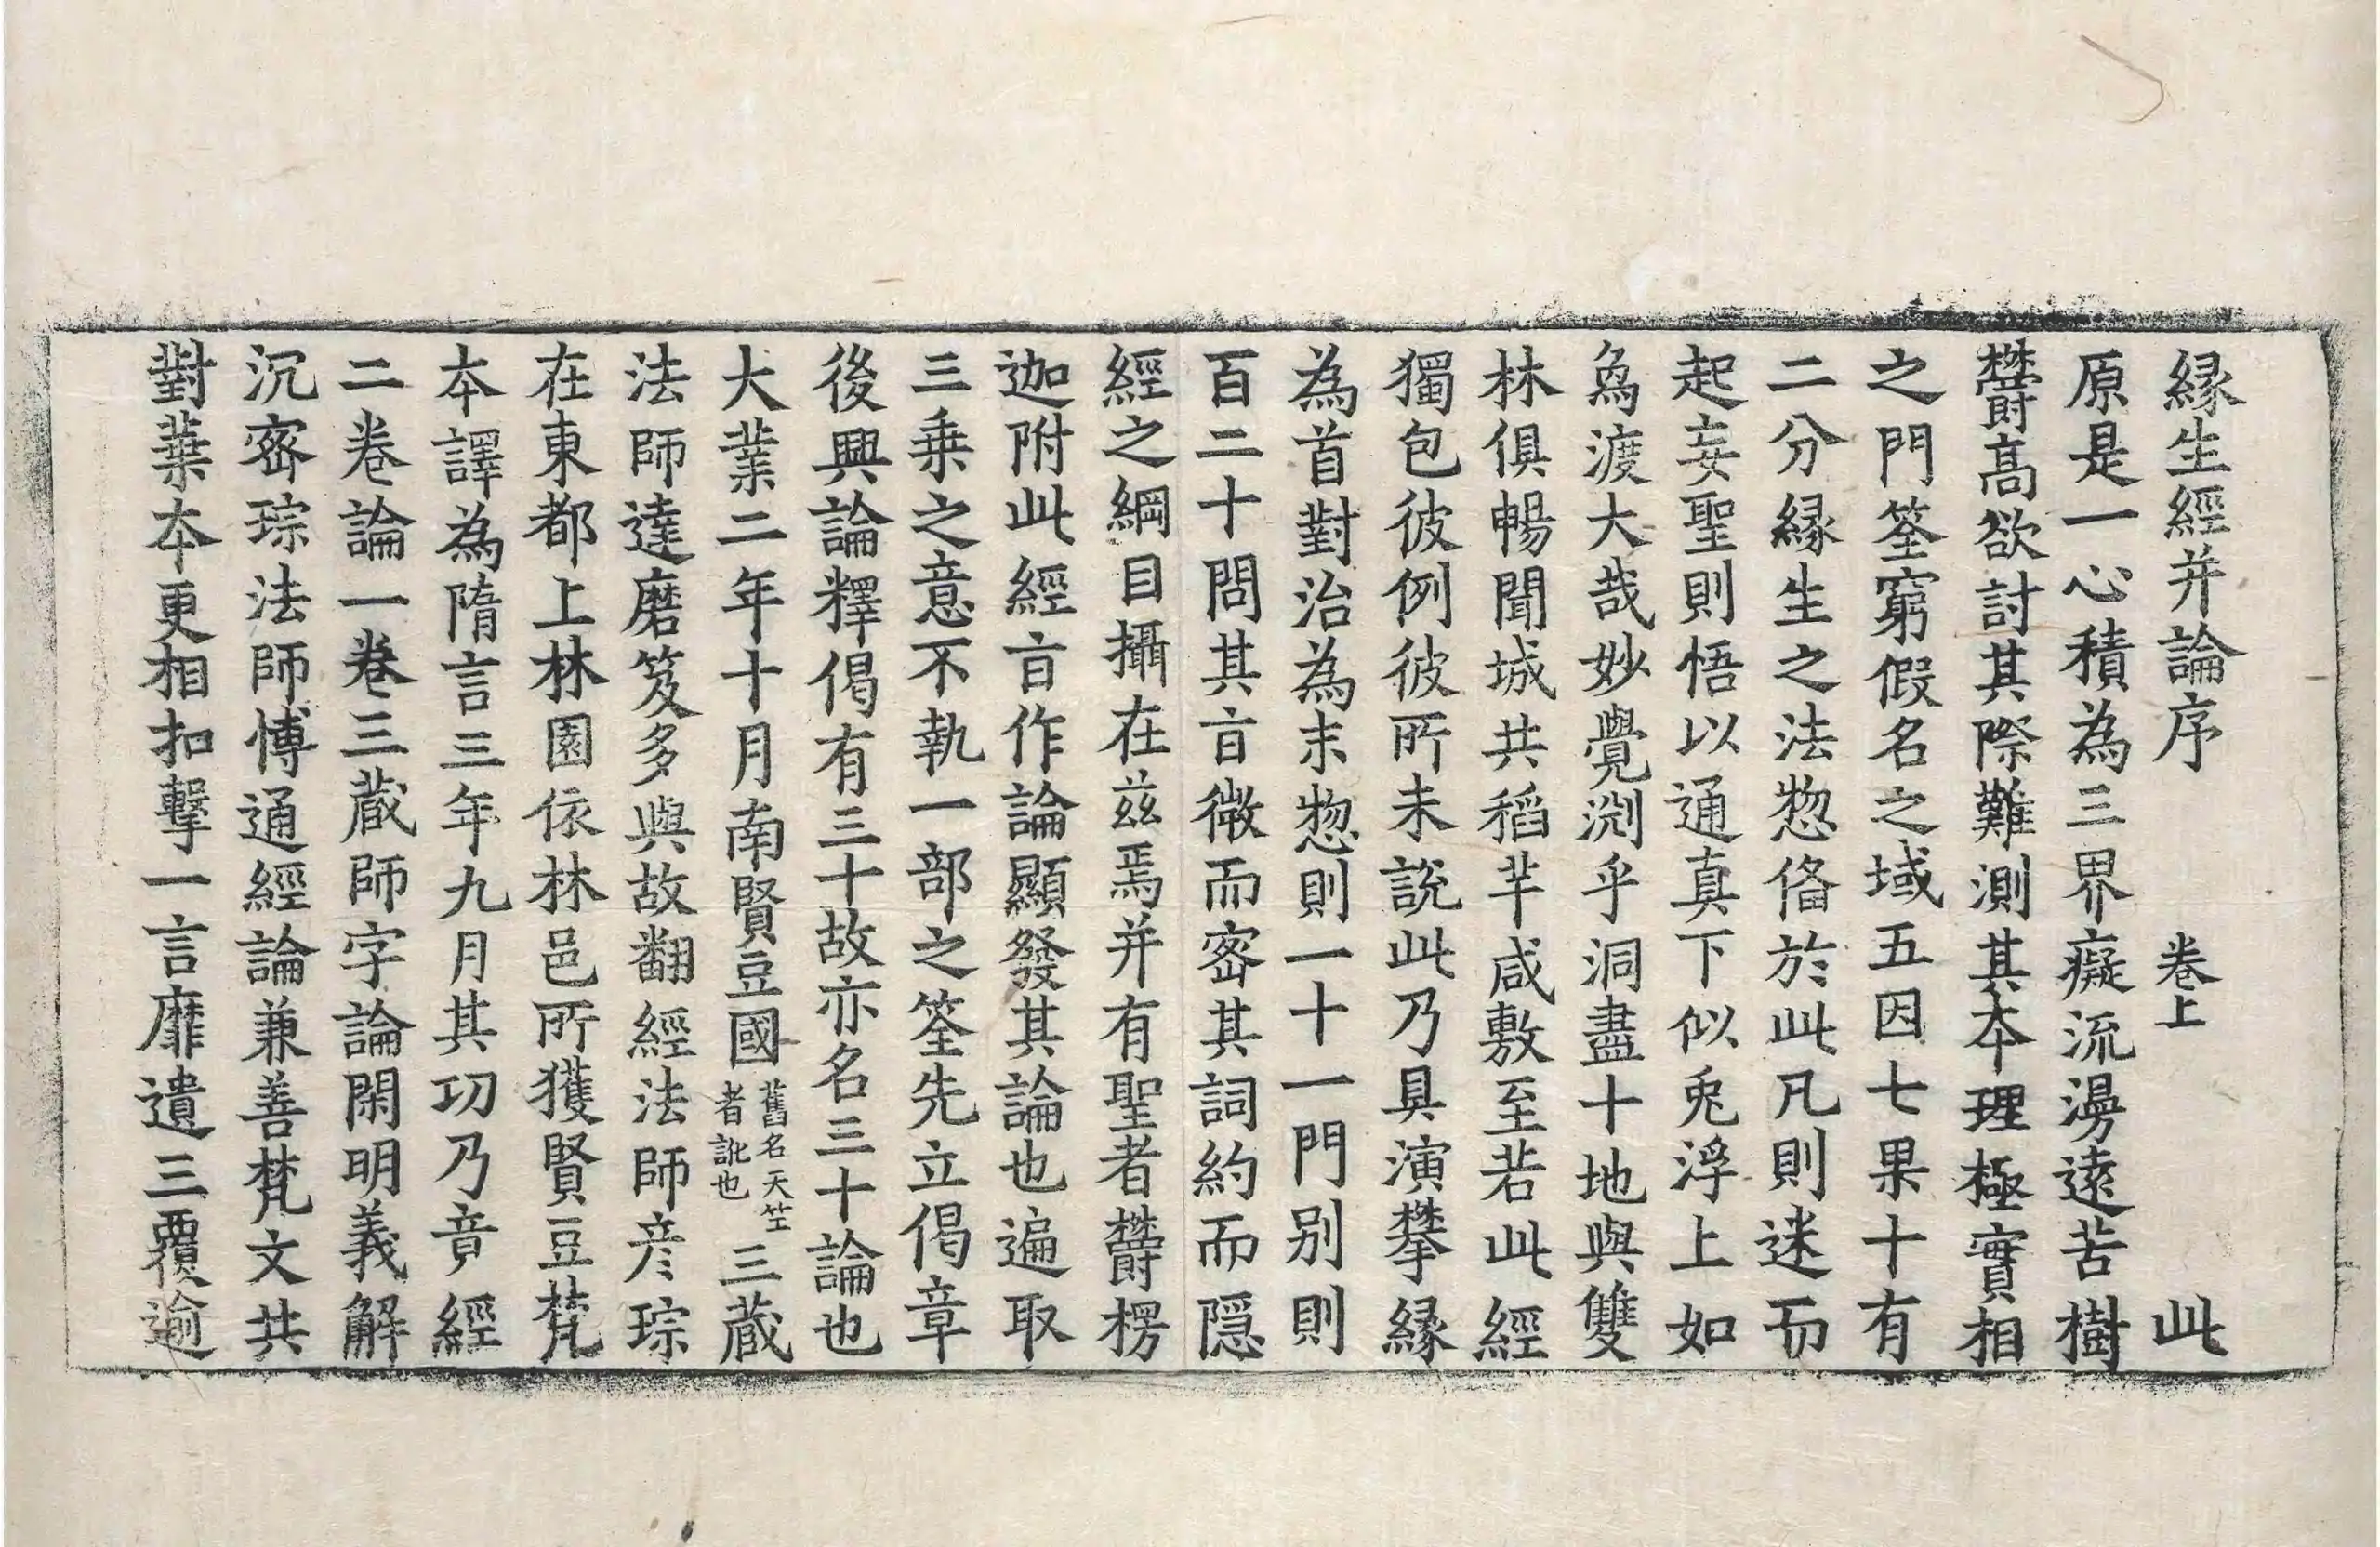 緣生經并論序 卷上 此
原是一心積為三界癡流漫遠苦樹
欝高欲討其際難測其本理極實相
之門筌窮假名之域五因七果十有
二分緣生之法惣俻於此凡則迷而
起妄聖則悟以通真下似兎浮上如
象渡大哉妙覺渕乎洞盡十地與雙
林俱暢聞城共稻芉咸敷至若此經
獨包彼例彼所未說此乃具演攀緣
為首對治為末惣則一十一門别則
百二十問其㫖微而宻其詞約而隱
經之綱目攝在兹焉并有聖者欝楞
迦附此經㫖作論顯發其論也遍取
三乗之意不執一部之筌先立偈章
後興論釋偈有三十故亦名三十論也
大業二年十月南賢豆國舊名天笁者訛也三蔵
法師達磨笈多與故翻經法師彦琮
在東都上林園依林邑所獲賢豆梵
本譯為隋言三年九月其功乃竟經
二卷論一卷三蔵師字論閑明義解
沉宻琮法師博通經論兼善梵文共
對葉本更相扣擊一言靡遺三覆逾